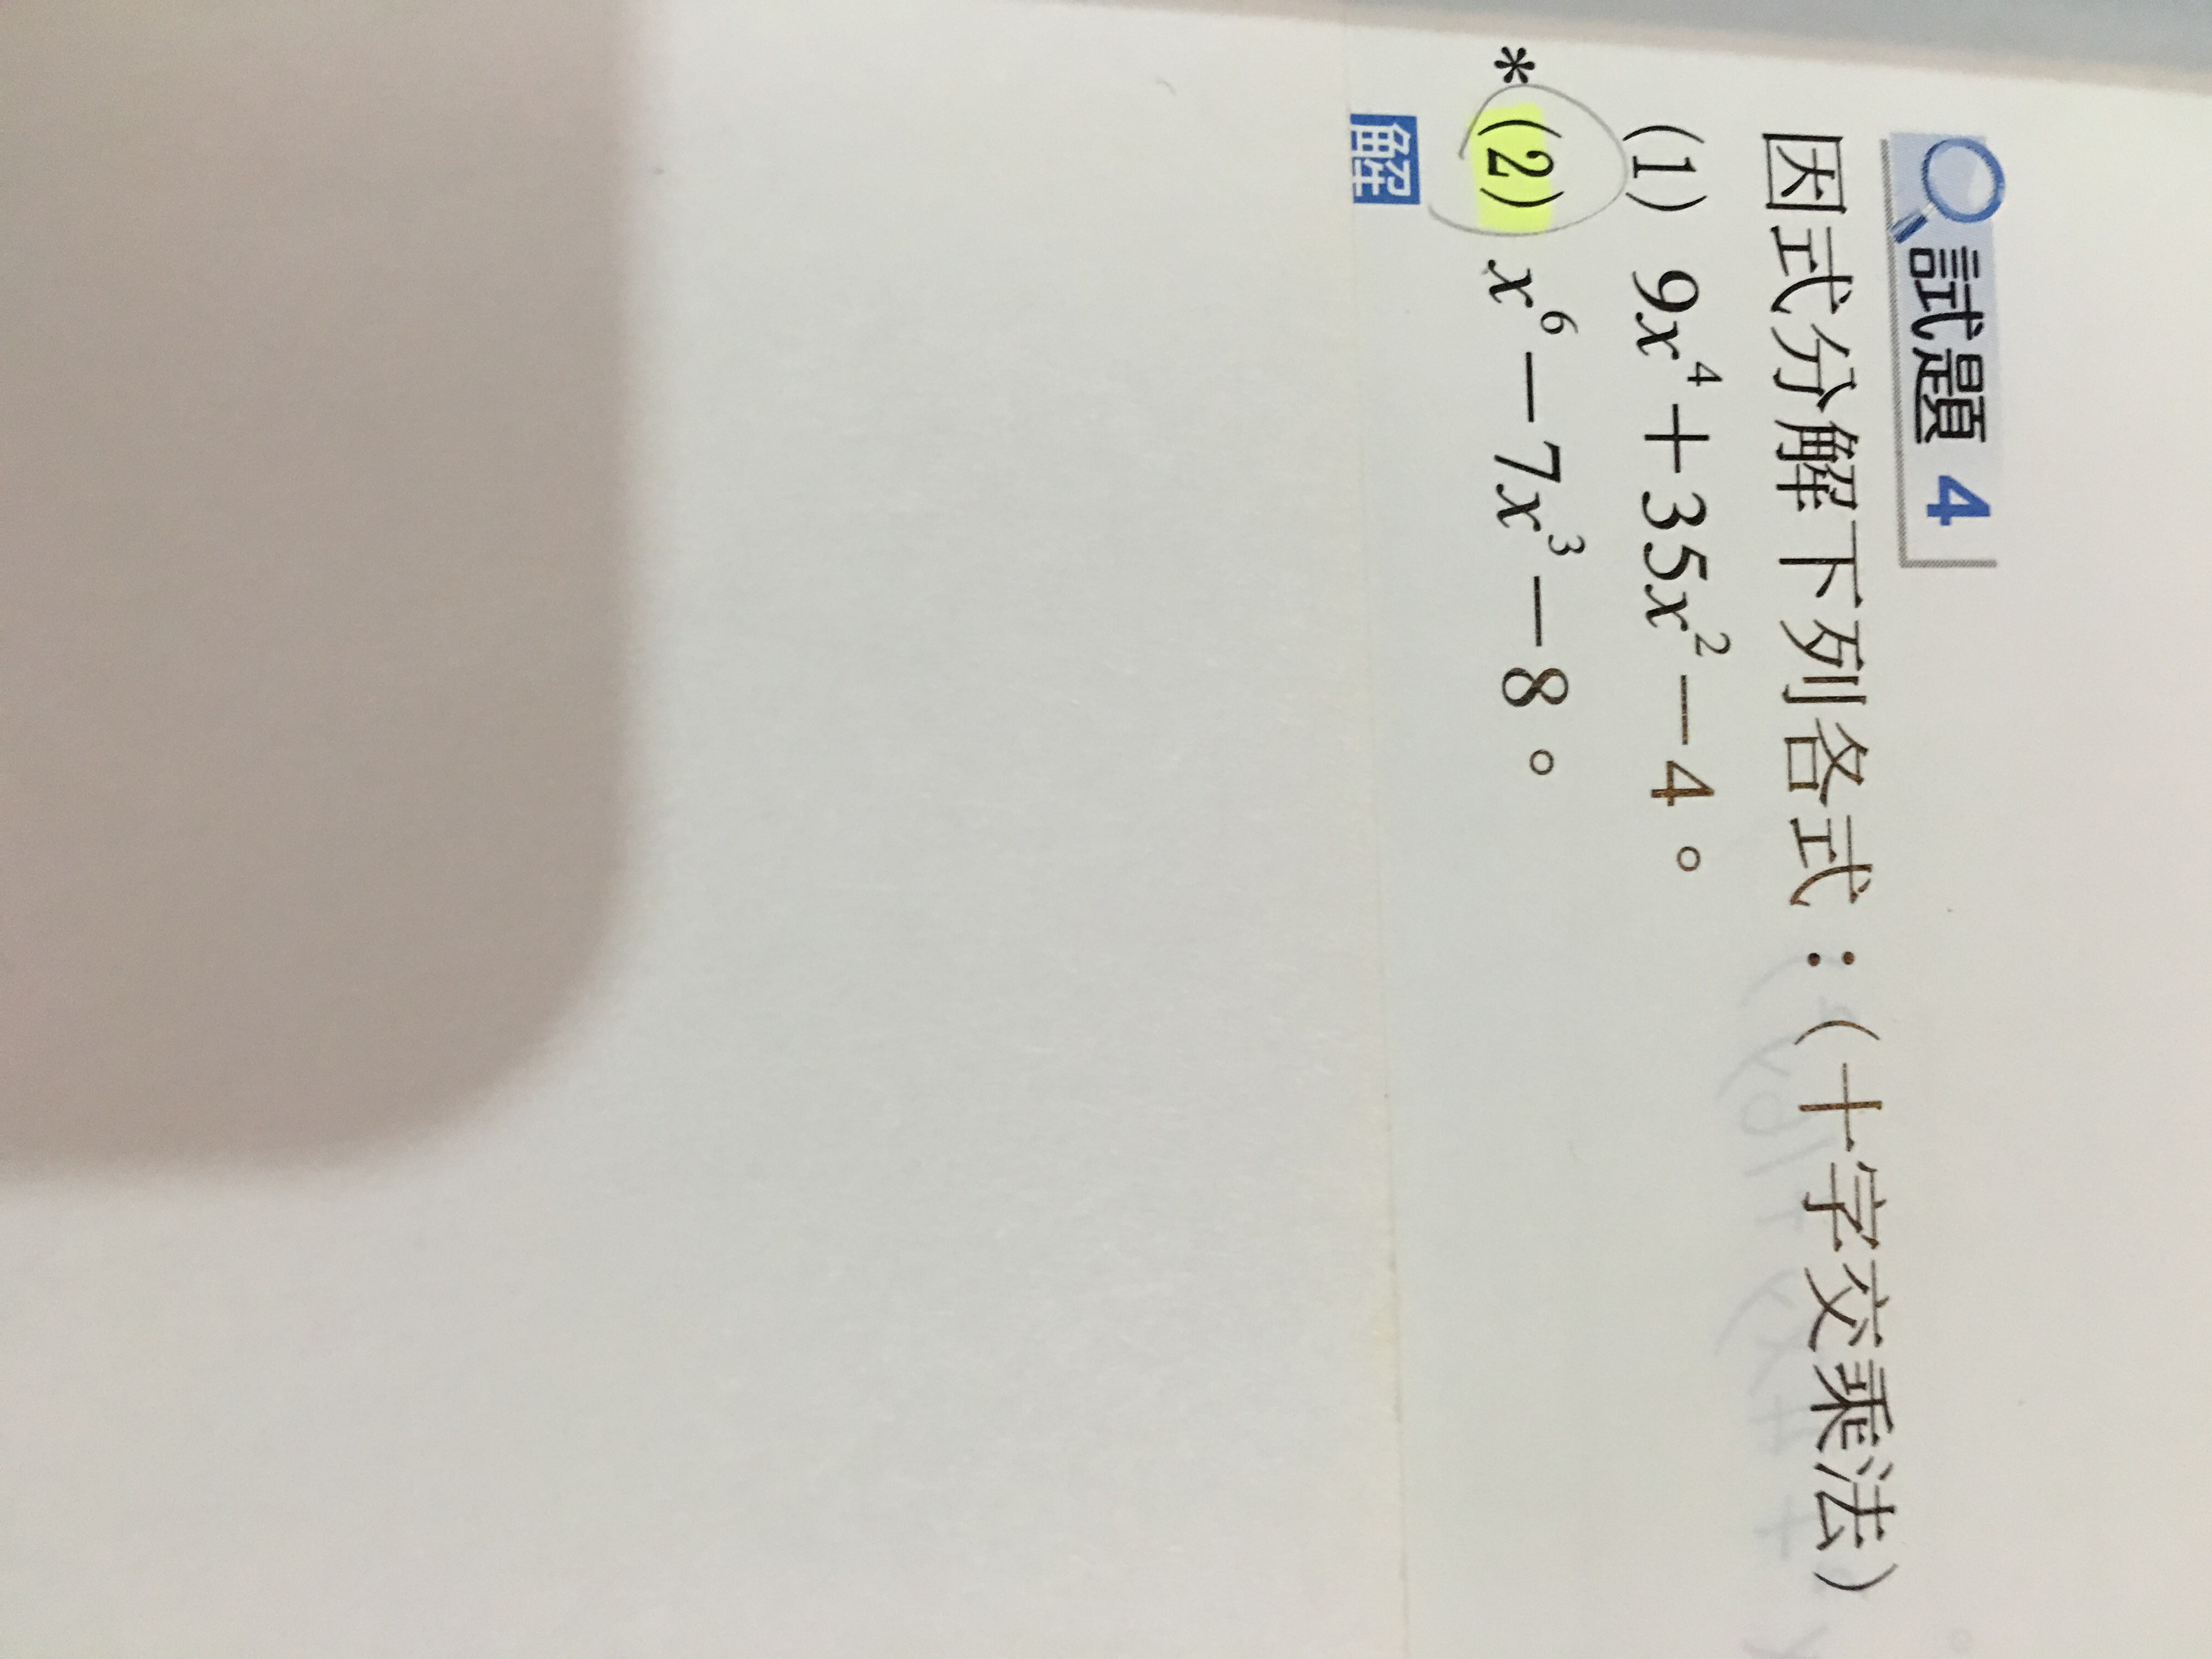 試題 4
因式分解下列各式：（十字交乘法）
(1) 9x⁴＋35x²－4。
*(2) x⁶－7x³－8。
解